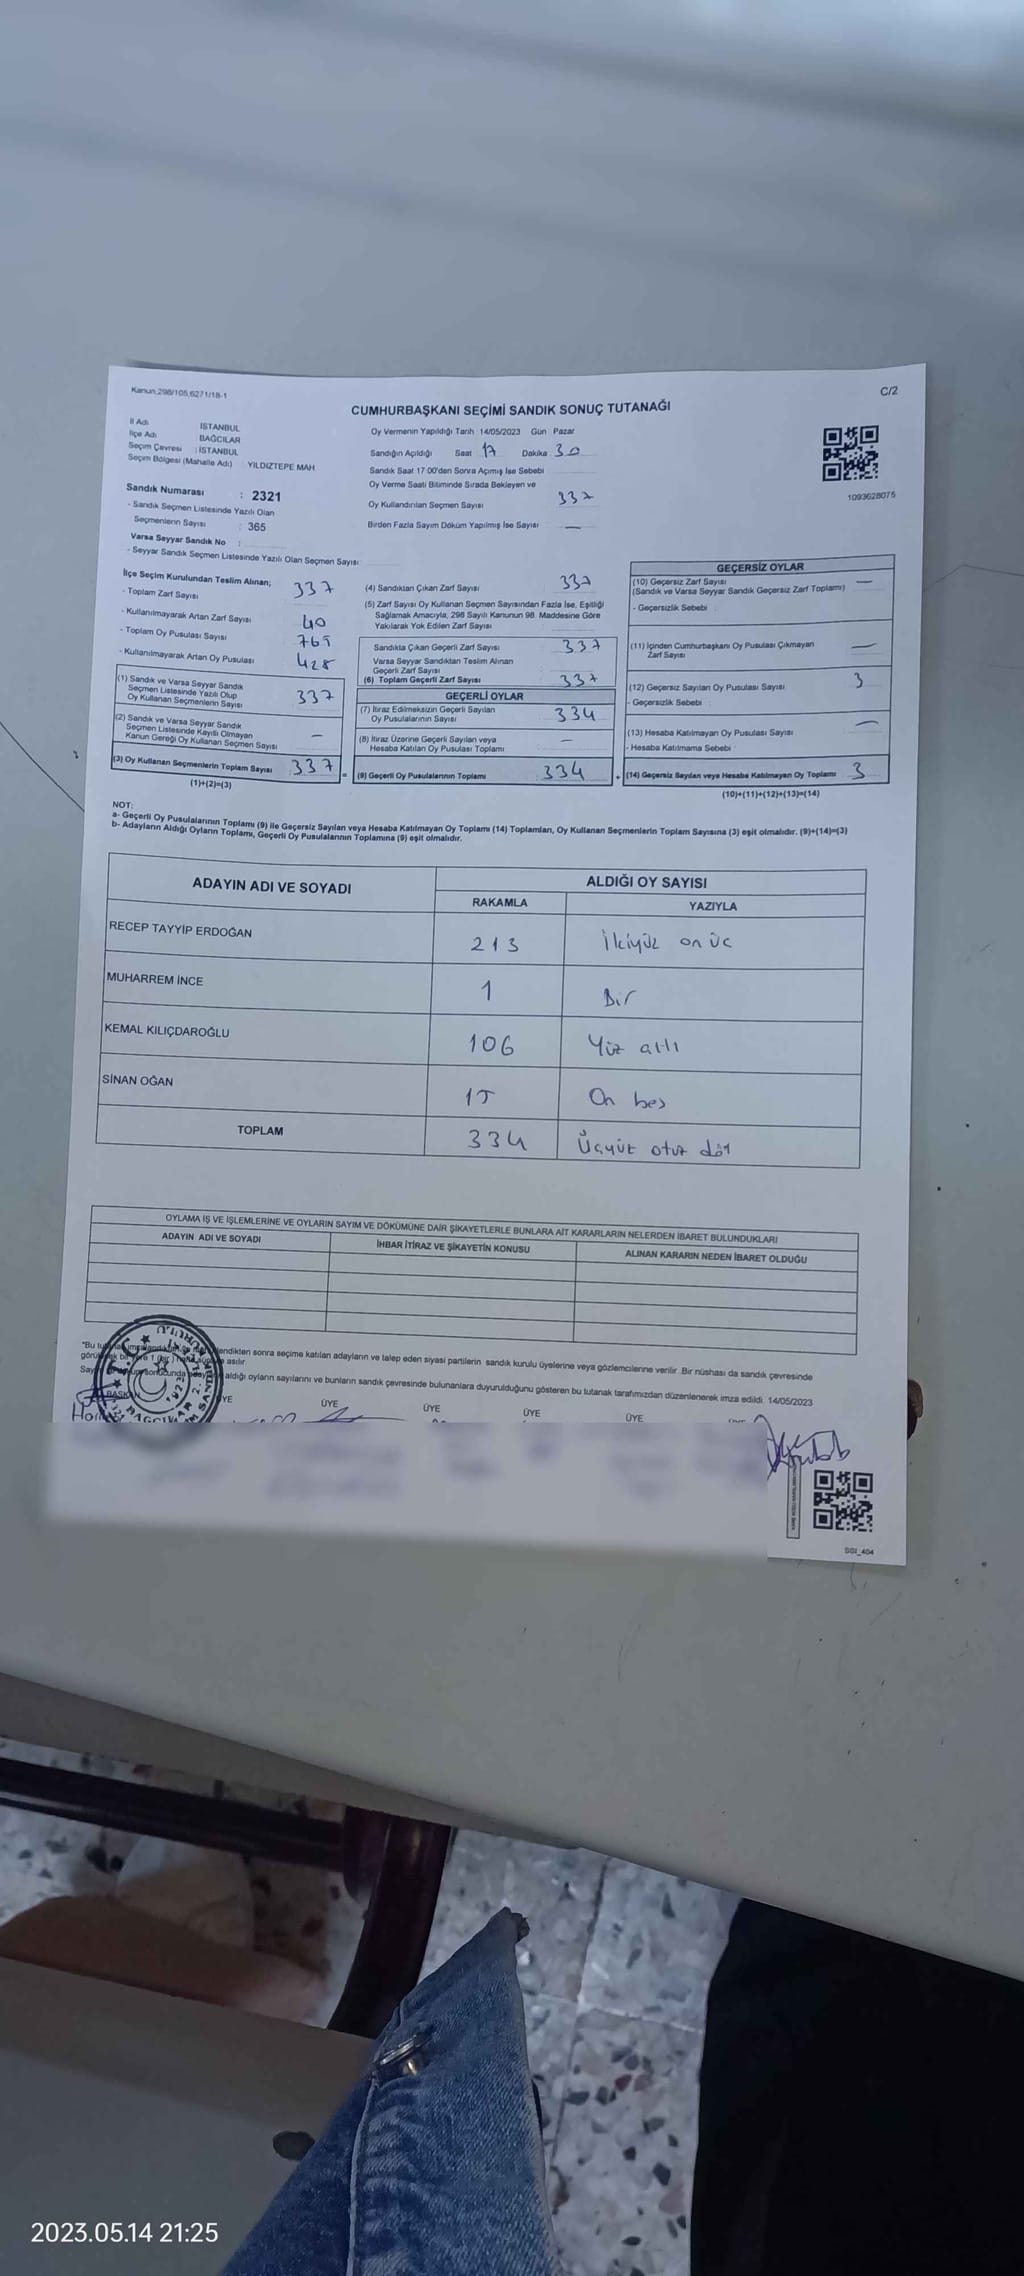 Kanun,298/105,6271/18-1
C/2
CUMHURBAŞKANI SEÇİMİ SANDIK SONUÇ TUTANAĞI
İl Adı İSTANBUL
İlçe Adı BAĞCILAR
Seçim Çevresi : İSTANBUL
Seçim Bölgesi (Mahalle Adı) YILDIZTEPE MAH
Sandık Numarası : 2321
- Sandık Seçmen Listesinde Yazılı Olan
Seçmenlerin Sayısı : 365
Varsa Seyyar Sandık No :
- Seyyar Sandık Seçmen Listesinde Yazılı Olan Seçmen Sayısı
Oy Vermenin Yapıldığı Tarih :14/05/2023 Gün Pazar
Sandığın Açıldığı Saat 17 Dakika 30
Sandık Saat 17 00'den Sonra Açımış İse Sebebi
Oy Verme Saati Bitiminde Sırada Bekleyen ve
Oy Kullandırılan Seçmen Sayısı 337
Birden Fazla Sayım Döküm Yapılmış İse Sayısı —
1093628075
İlçe Seçim Kurulundan Teslim Alınan;
- Toplam Zarf Sayısı 337
- Kullanılmayarak Artan Zarf Sayısı 40
- Toplam Oy Pusulası Sayısı 765
- Kullanılmayarak Artan Oy Pusulası 428
(1) Sandık ve Varsa Seyyar Sandık
Seçmen Listesinde Yazılı Olup
Oy Kullanan Seçmenlerin Sayısı 337
(2) Sandık ve Varsa Seyyar Sandık
Seçmen Listesinde Kayıtlı Olmayan
Kanun Gereği Oy Kullanan Seçmen Sayısı —
(3) Oy Kullanan Seçmenlerin Toplam Sayısı 337 =
(1)+(2)=(3)
(4) Sandıktan Çıkan Zarf Sayısı 337
(5) Zarf Sayısı Oy Kullanan Seçmen Sayısından Fazla İse, Eşitliği
Sağlamak Amacıyla, 298 Sayılı Kanunun 98. Maddesine Göre
Yakılarak Yok Edilen Zarf Sayısı
Sandıkta Çıkan Geçerli Zarf Sayısı 337
Varsa Seyyar Sandıktan Teslim Alınan
Geçerli Zarf Sayısı
(6) Toplam Geçerli Zarf Sayısı 337
GEÇERLİ OYLAR
(7) İtiraz Edilmeksizin Geçerli Sayılan
Oy Pusulalarının Sayısı 334
(8) İtiraz Üzerine Geçerli Sayılan veya
Hesaba Katılan Oy Pusulası Toplamı —
(9) Geçerli Oy Pusulalarının Toplamı 334 +
GEÇERSİZ OYLAR
(10) Geçersiz Zarf Sayısı —
(Sandık ve Varsa Seyyar Sandık Geçersiz Zarf Toplamı)
- Geçersizlik Sebebi
(11) İçinden Cumhurbaşkanı Oy Pusulası Çıkmayan —
Zarf Sayısı
(12) Geçersiz Sayılan Oy Pusulası Sayısı 3
- Geçersizlik Sebebi
(13) Hesaba Katılmayan Oy Pusulası Sayısı —
- Hesaba Katılmama Sebebi
(14) Geçersiz Sayılan veya Hesaba Katılmayan Oy Toplamı 3
(10)+(11)+(12)+(13)=(14)
NOT:
a- Geçerli Oy Pusulalarının Toplamı (9) ile Geçersiz Sayılan veya Hesaba Katılmayan Oy Toplamı (14) Toplamları, Oy Kullanan Seçmenlerin Toplam Sayısına (3) eşit olmalıdır. (9)+(14)=(3)
b- Adayların Aldığı Oyların Toplamı, Geçerli Oy Pusulalarının Toplamına (9) eşit olmalıdır.
ADAYIN ADI VE SOYADI
ALDIĞI OY SAYISI
RAKAMLA YAZIYLA
RECEP TAYYİP ERDOĞAN 213 İkiyüz on üc
MUHARREM İNCE 1 Bir
KEMAL KILIÇDAROĞLU 106 Yüz altı
SİNAN OĞAN 15 On bes
TOPLAM 334 Üçyüz otuz döt
OYLAMA İŞ VE İŞLEMLERİNE VE OYLARIN SAYIM VE DÖKÜMÜNE DAİR ŞİKAYETLERLE BUNLARA AİT KARARLARIN NELERDEN İBARET BULUNDUKLARI
ADAYIN ADI VE SOYADI
İHBAR İTİRAZ VE ŞİKAYETİN KONUSU
ALINAN KARARIN NEDEN İBARET OLDUĞU
lendikten sonra seçime katılan adayların ve talep eden siyasi partilerin sandık kurulu üyelerine veya gözlemcilerine verilir. Bir nüshası da sandık çevresinde
asılır.
aldığı oyların sayılarını ve bunların sandık çevresinde bulunanlara duyurulduğunu gösteren bu tutanak tarafımızdan düzenlenerek imza edildi. 14/05/2023
BAŞKAN
ÜYE
ÜYE
ÜYE
ÜYE
SGI_404
2023.05.14 21:25